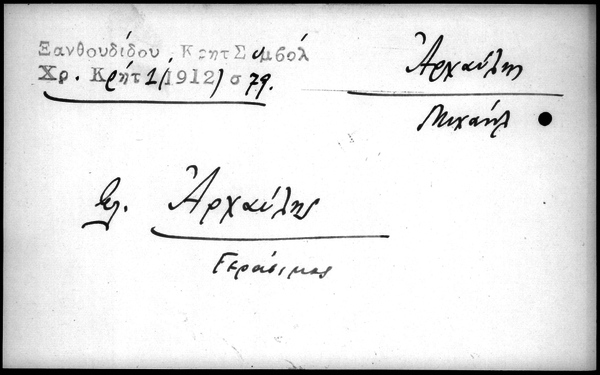 Ξανθουδίδου Κρητ Συμβόλ
Χρ. Κρήτ 1 (1912) σ 79.
Ἀρχαύλης
Μιχαήλ
βλ. Ἀρχαύλης
Γεράσιμος